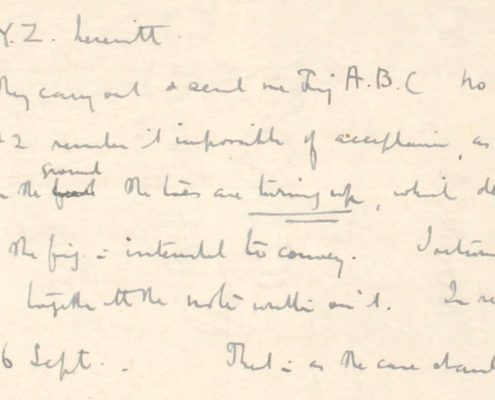 Y. Z. herewith.
they carry out & send me Fig A.B.C no
2 render it impossible of acceptance, as
the ground the toes are turning up, which
the fig: is intended to convey.
together with the note written on it. In
6 Sept. That is as the case stand